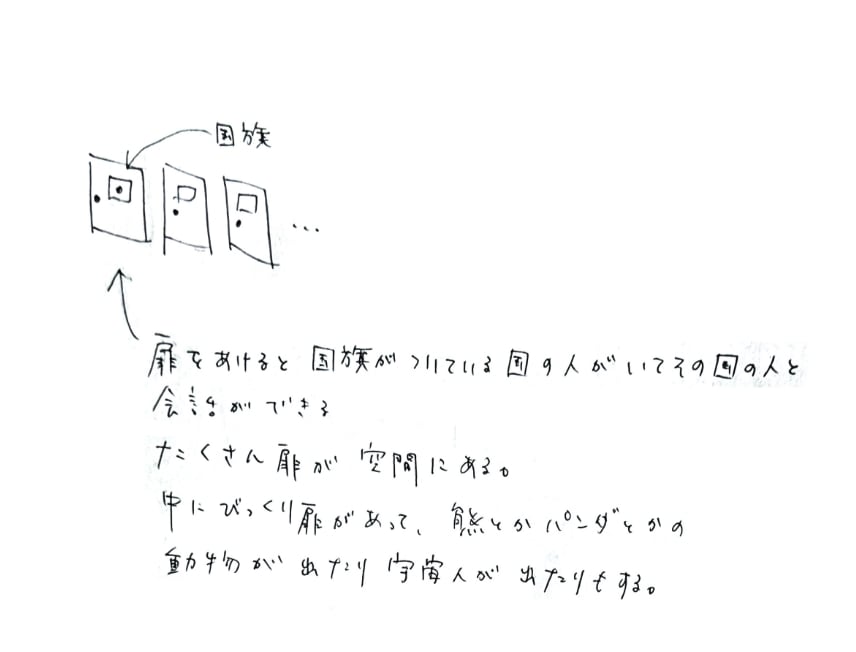 国旗
扉をあけると国旗がついている国の人がいてその国の人と
会話ができる
たくさん扉が空間にある。
中にびっくり扉があって、熊とかパンダとかの
動物が出たり宇宙人が出たりもする。